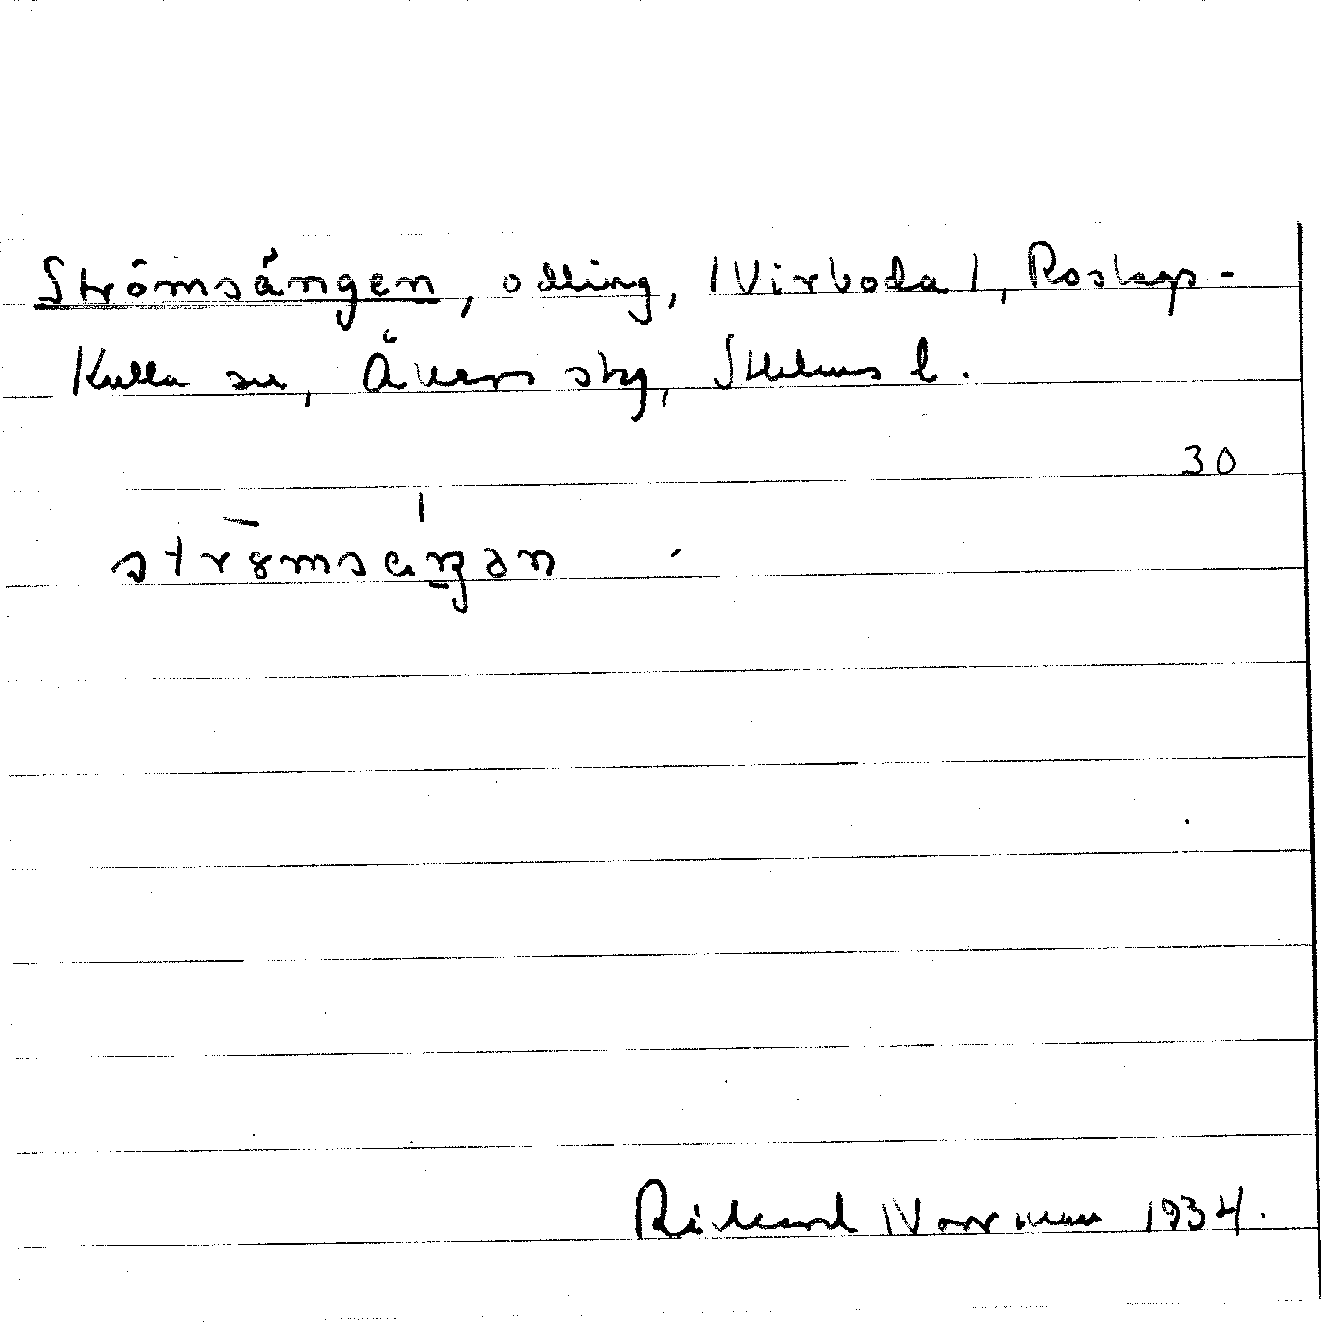 Strömsängen, odling, /Virboda/, Roslags-
Kulla sn, Åkers skg, Sthlms l.
30
strömsäŋən
Rickard Norrman 1934.